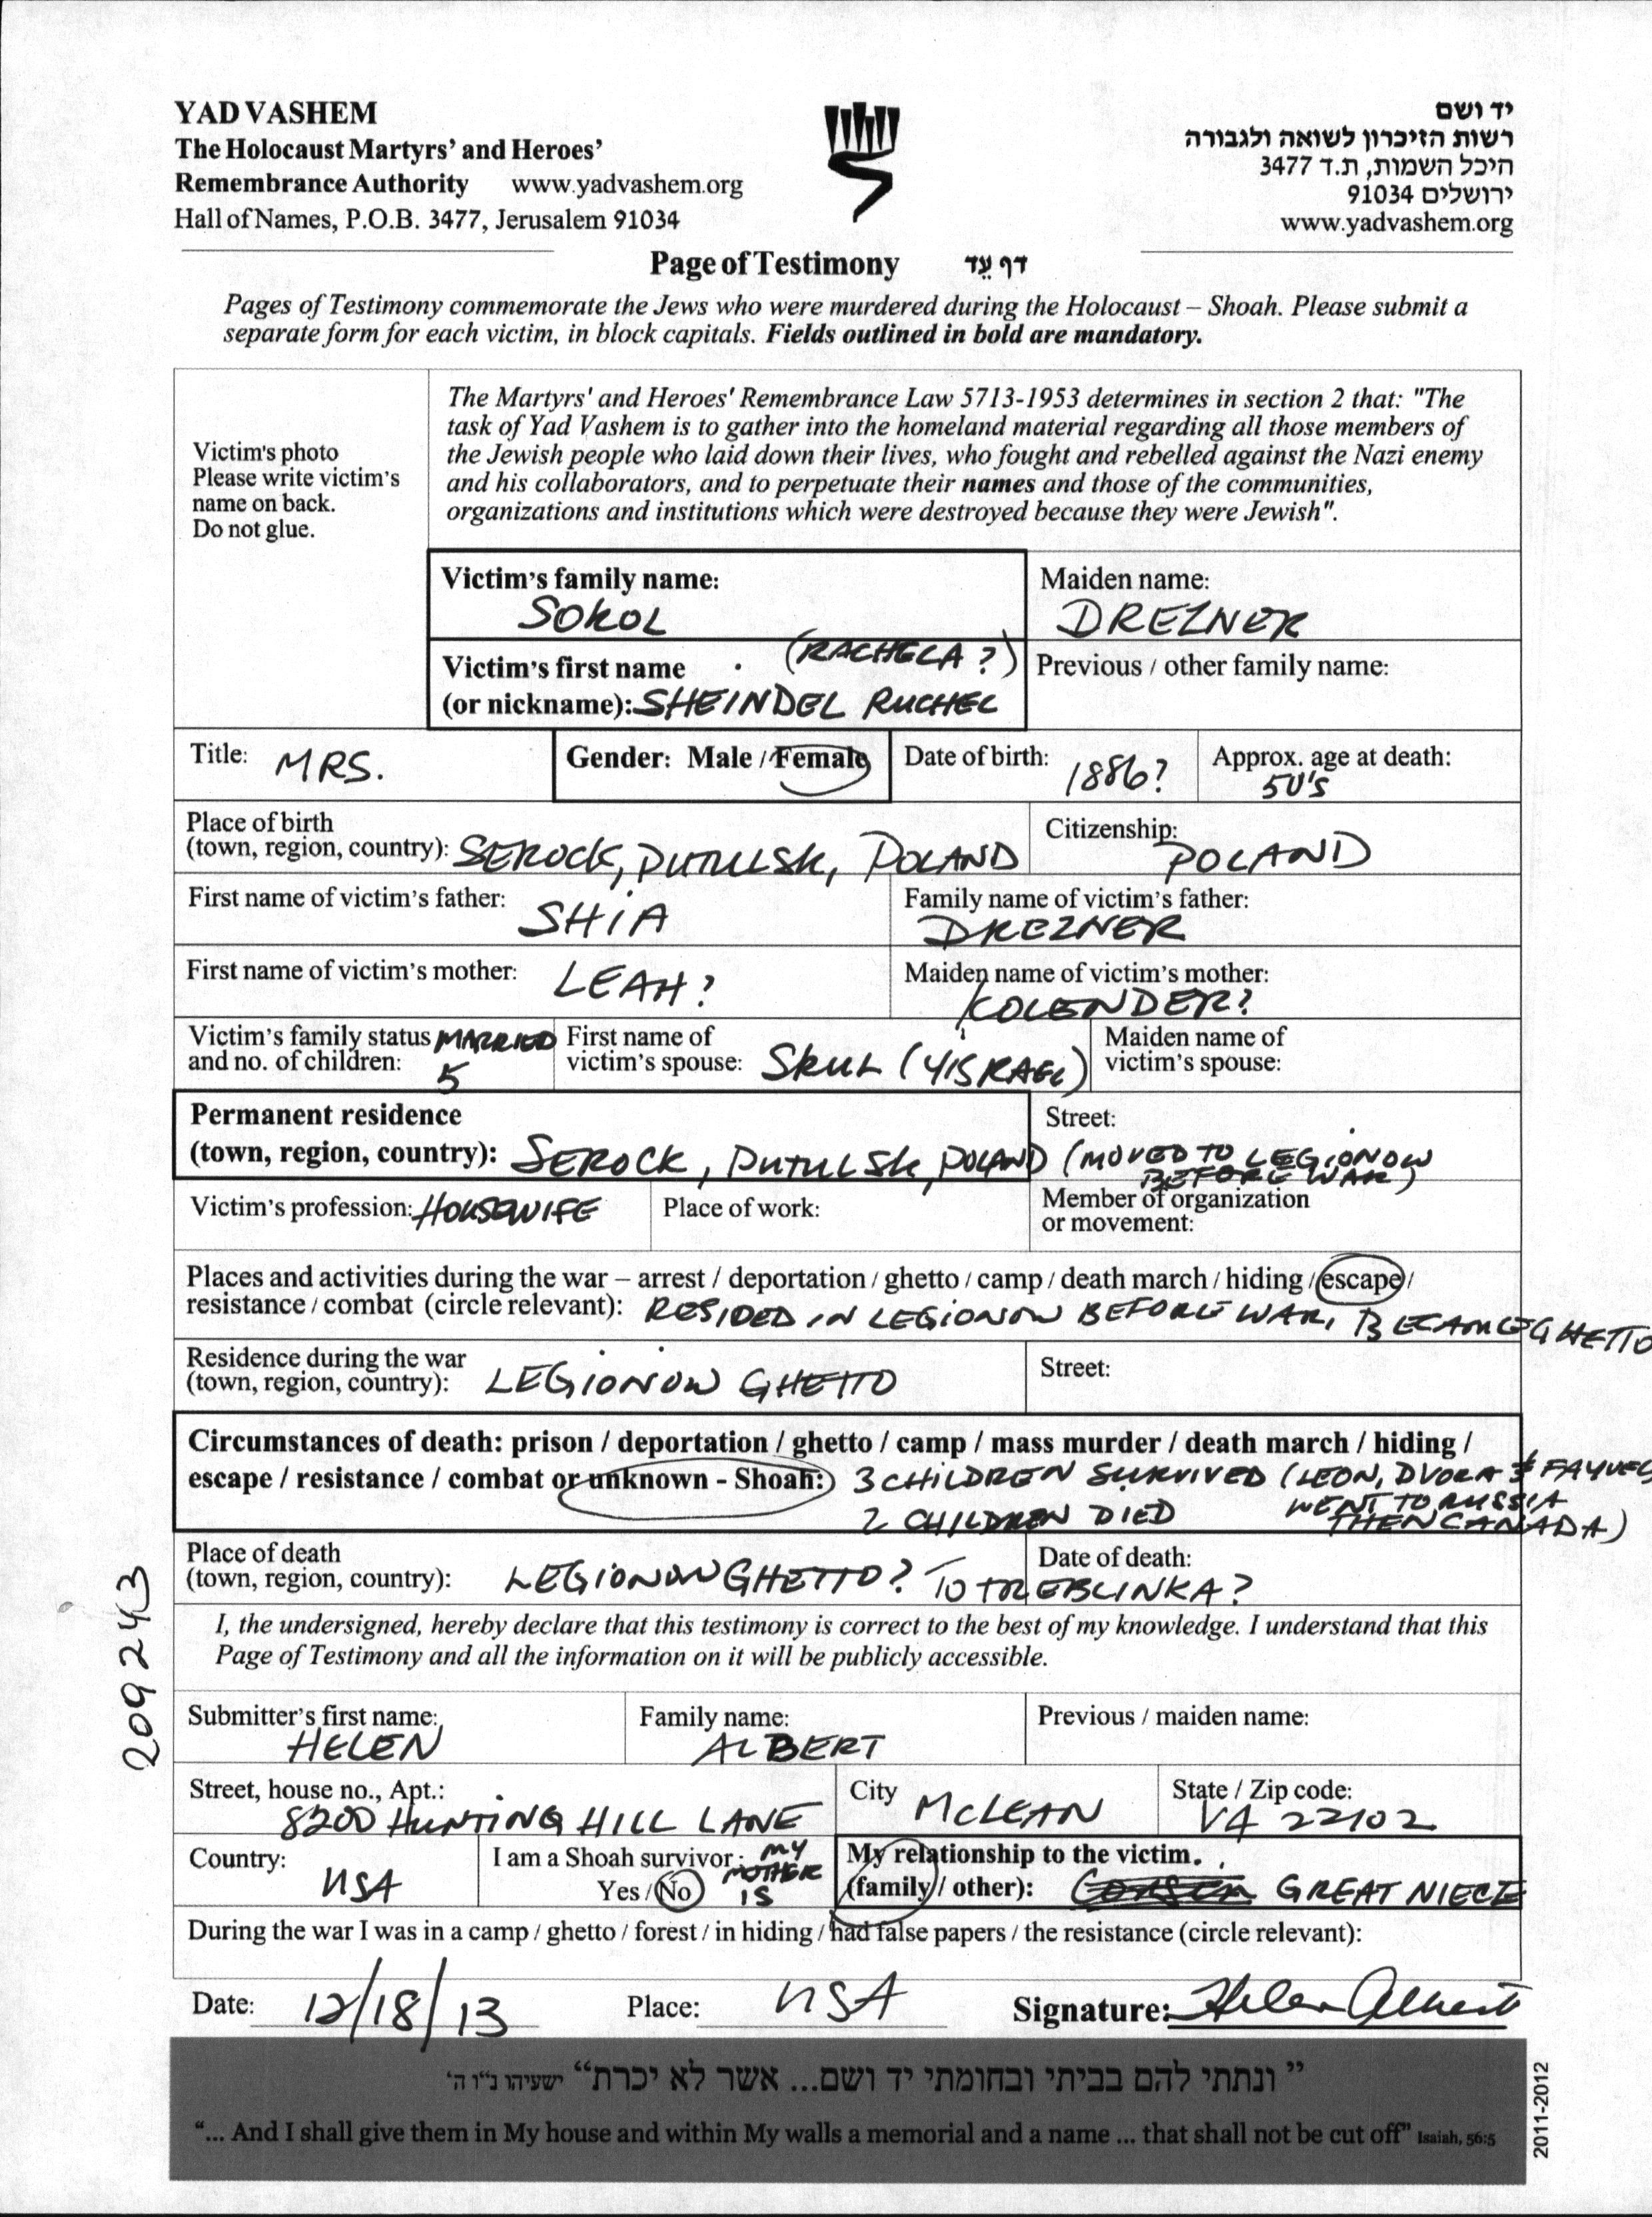 YAD VASHEM
The Holocaust Martyrs' and Heroes'
Remembrance Authority www.yadvashem.org
Hall of Names, P.O.B. 3477, Jerusalem 91034
יד ושם
רשות הזיכרון לשואה ולגבורה
היכל השמות, ת.ד 3477
ירושלים 91034
www.yadvashem.org
Page of Testimony דף עֵד
Pages of Testimony commemorate the Jews who were murdered during the Holocaust – Shoah. Please submit a
separate form for each victim, in block capitals. Fields outlined in bold are mandatory.
Victim's photo
Please write victim's
name on back.
Do not glue.
The Martyrs' and Heroes' Remembrance Law 5713-1953 determines in section 2 that: "The
task of Yad Vashem is to gather into the homeland material regarding all those members of
the Jewish people who laid down their lives, who fought and rebelled against the Nazi enemy
and his collaborators, and to perpetuate their names and those of the communities,
organizations and institutions which were destroyed because they were Jewish".
Victim's family name:
SOKOL
Maiden name:
DREZNER
Victim's first name (RACHELA?)
(or nickname): SHEINDEL RUCHEL
Previous / other family name:
Title: MRS.
Gender: Male / Female
Date of birth: 1886?
Approx. age at death:
50'S
Place of birth
(town, region, country): SEROCK, PUTULSK, POLAND
Citizenship:
POLAND
First name of victim's father: SHIA
Family name of victim's father:
DREZNER
First name of victim's mother: LEAH?
Maiden name of victim's mother:
KOLENDER?
Victim's family status MARRIED
and no. of children: 5
First name of
victim's spouse: SRUL (YISRAEL)
Maiden name of
victim's spouse:
Permanent residence
(town, region, country): SEROCK, PUTULSK, POLAND
Street:
(MOVED TO LEGIONOW
BEFORE WAR)
Victim's profession: HOUSEWIFE
Place of work:
Member of organization
or movement:
Places and activities during the war – arrest / deportation / ghetto / camp / death march / hiding / escape /
resistance / combat (circle relevant): RESIDED IN LEGIONOW BEFORE WAR, BECAME GHETTO
Residence during the war
(town, region, country): LEGIONOW GHETTO
Street:
Circumstances of death: prison / deportation / ghetto / camp / mass murder / death march / hiding /
escape / resistance / combat or unknown - Shoah: 3 CHILDREN SURVIVED (LEON, DVORA & FAYVEL
2 CHILDREN DIED WENT TO RUSSIA
THEN CANADA)
Place of death
(town, region, country): LEGIONOW GHETTO? TO TREBLINKA?
Date of death:
I, the undersigned, hereby declare that this testimony is correct to the best of my knowledge. I understand that this
Page of Testimony and all the information on it will be publicly accessible.
209243
Submitter's first name:
HELEN
Family name:
ALBERT
Previous / maiden name:
Street, house no., Apt.:
8200 HUNTING HILL LANE
City MCLEAN
State / Zip code:
VA 22102
Country:
USA
I am a Shoah survivor: MY
MOTHER
Yes / No IS
My relationship to the victim.
(family / other): GREAT NIECE
During the war I was in a camp / ghetto / forest / in hiding / had false papers / the resistance (circle relevant):
Date: 12/18/13
Place: USA
Signature: Helen Albert
” ונתתי להם בביתי ובחומתי יד ושם... אשר לא יכרת“ ישעיהו נ״ו ה׳
"... And I shall give them in My house and within My walls a memorial and a name ... that shall not be cut off" Isaiah, 56:5
2011-2012